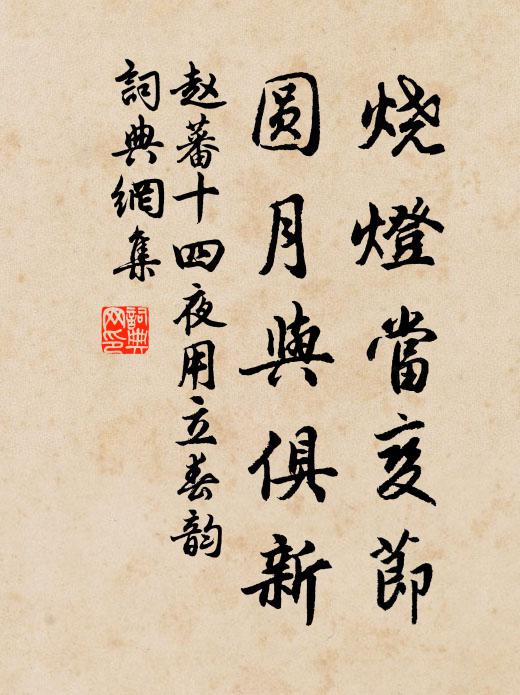 烧燈當变節
圆月與俱新
赵蕃十四夜用立春韵
詞典網集
詞典网印